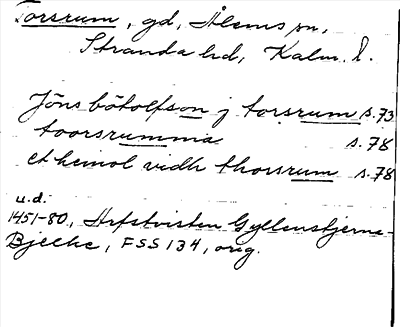 Torsrum, gd, Ålems sn,
Stranda hd, Kalm. l.
Jöns bötolfson j torsrum s. 73
toorsrumma s. 78
et hemol vidh thorsrum s. 78
u.d.
1451-80, Arfstvisten Gyllenstjerna-
Bjelke, FSS 134, orig.